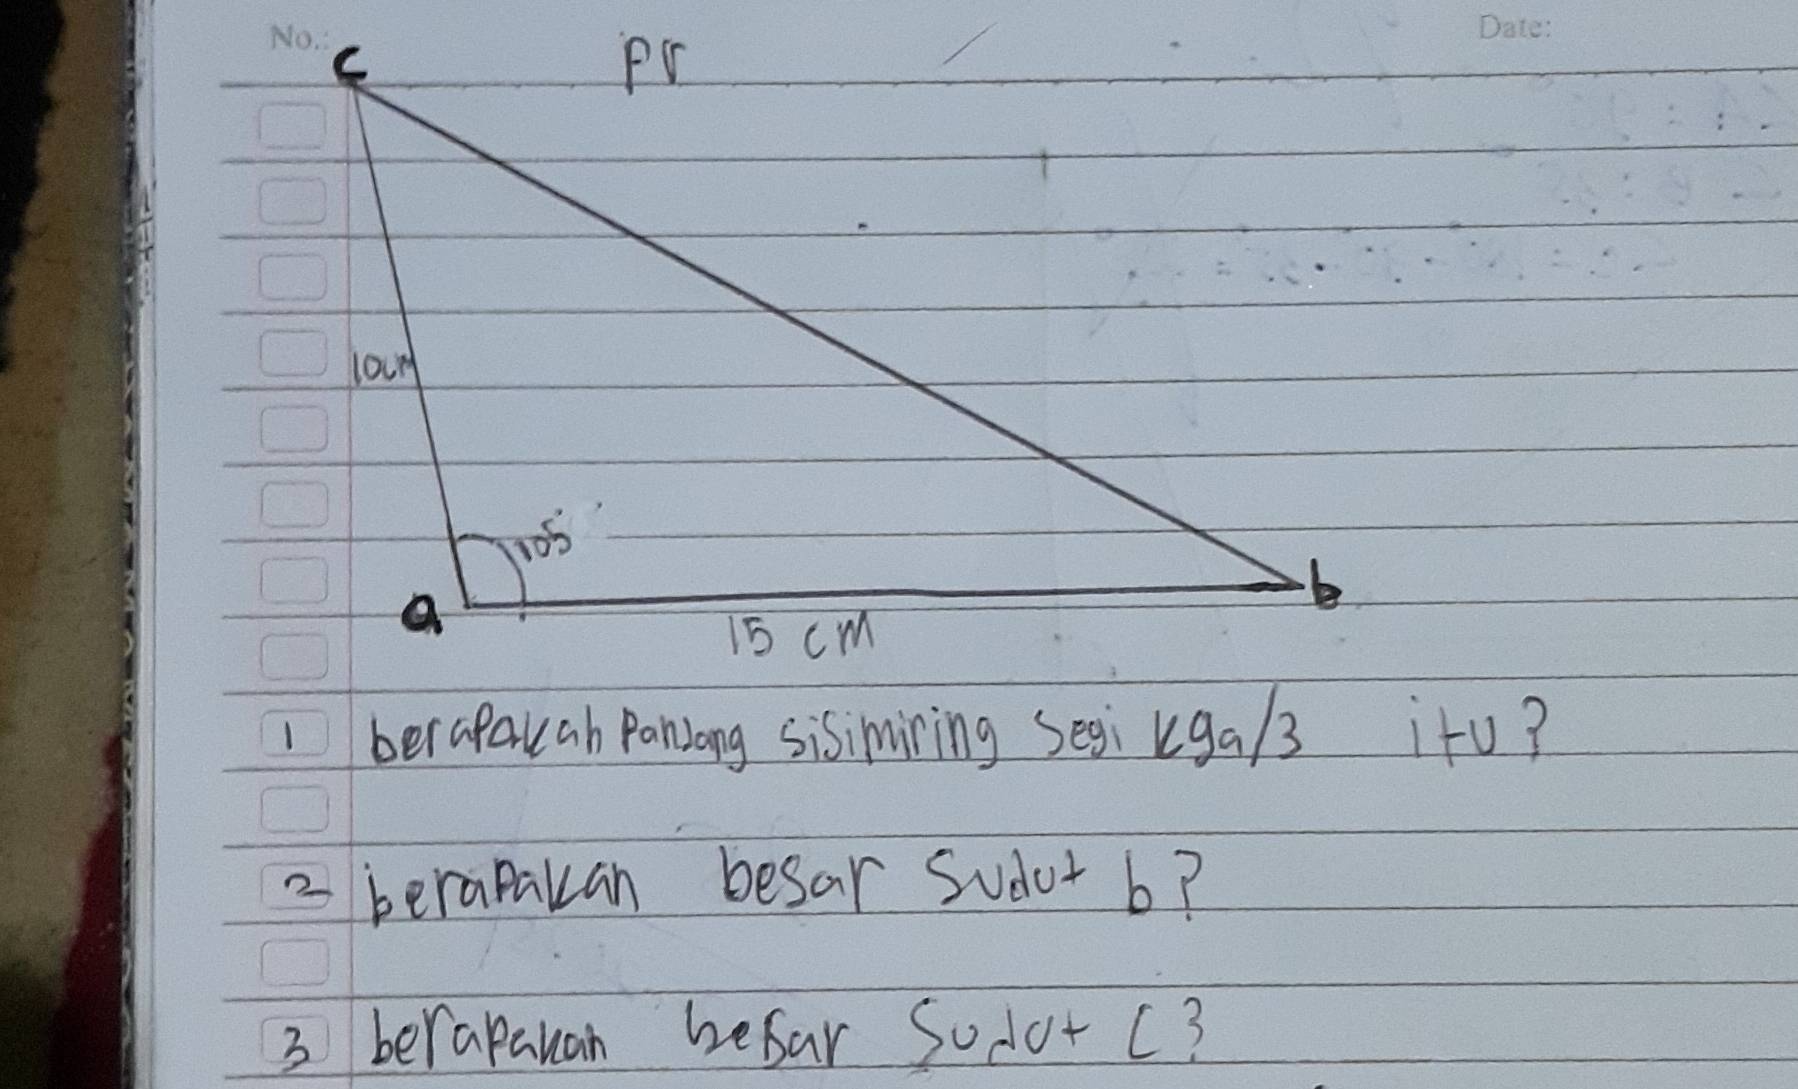 No.:
Date:
c
pr
10cm
105°
a
b
15 cm
1 berapakah panjang sisimiring segi kga/3 itu?
2 berapakah besar sudut b?
3 berapakah besar sudut C?